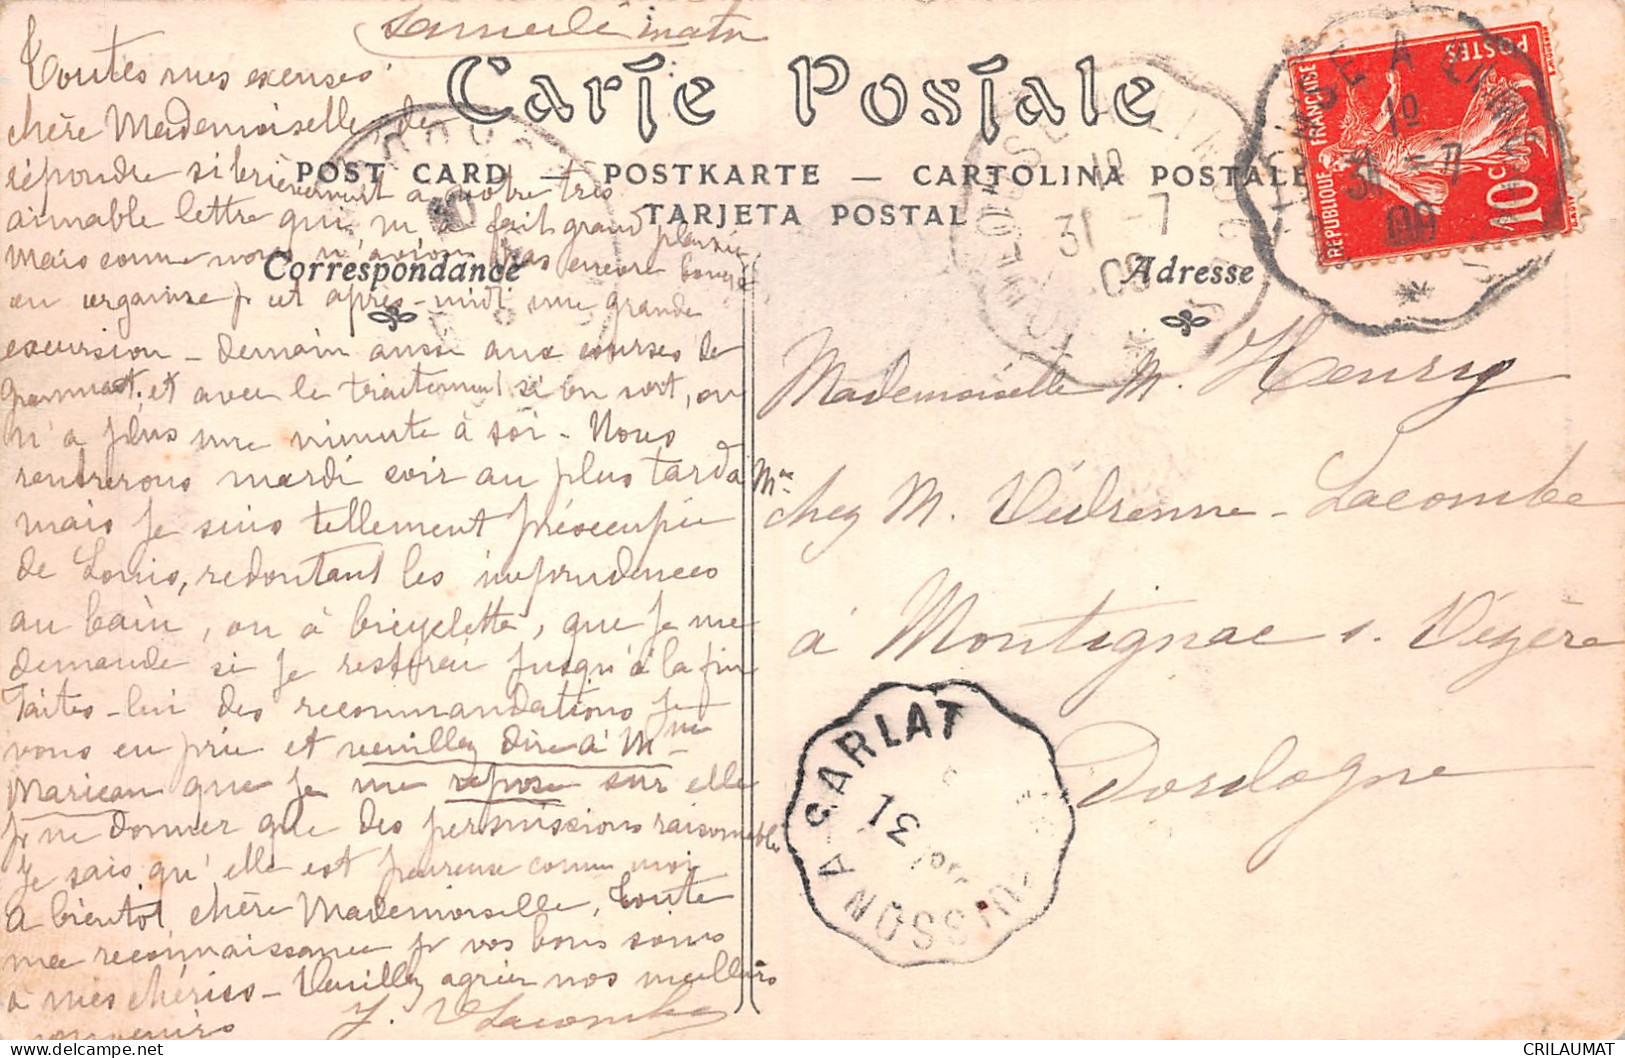 Samedi matin
Toutes mes excuses
chère Mademoiselle de
répondre si brièvement à votre très
aimable lettre qui m'a fait grand plaisir
mais comme nous n'avions pas encore bougé
on organise pr cet après-midi une grande
excursion - demain aussi aux courses de
Grammat, et avec le traitement si on sort, on
n'a plus une minute à soi - Nous
rentrerons mardi soir au plus tard
mais je suis tellement préoccupée
de Louis, redoutant les imprudences
au bain, ou à bicyclette, que je me
demande si je resterai jusqu'à la fin
Faites-lui des recommandations je
vous en prie et veuillez dire à Mme
Maricau que je me repose sur elle
pr ne donner que des permissions raisonnables
Je sais qu'elle est peureuse comme moi
A bientôt, chère Mademoiselle, toute
ma reconnaissance pr vos bons soins
à mes chéris - Veuillez agréer nos meilleurs
souvenirs
Lacombe
Carte Postale
POST CARD — POSTKARTE — CARTOLINA POSTALE
TARJETA POSTAL
Correspondance
Adresse
REPUBLIQUE FRANÇAISE
POSTES
10 c
31 -7
09
31 -7
09
Mademoiselle M. Henry
chez M. Védrenne-Lacombe
à Montignac s. Vézère
Dordogne
CARLAT
31
CRILAUMAT